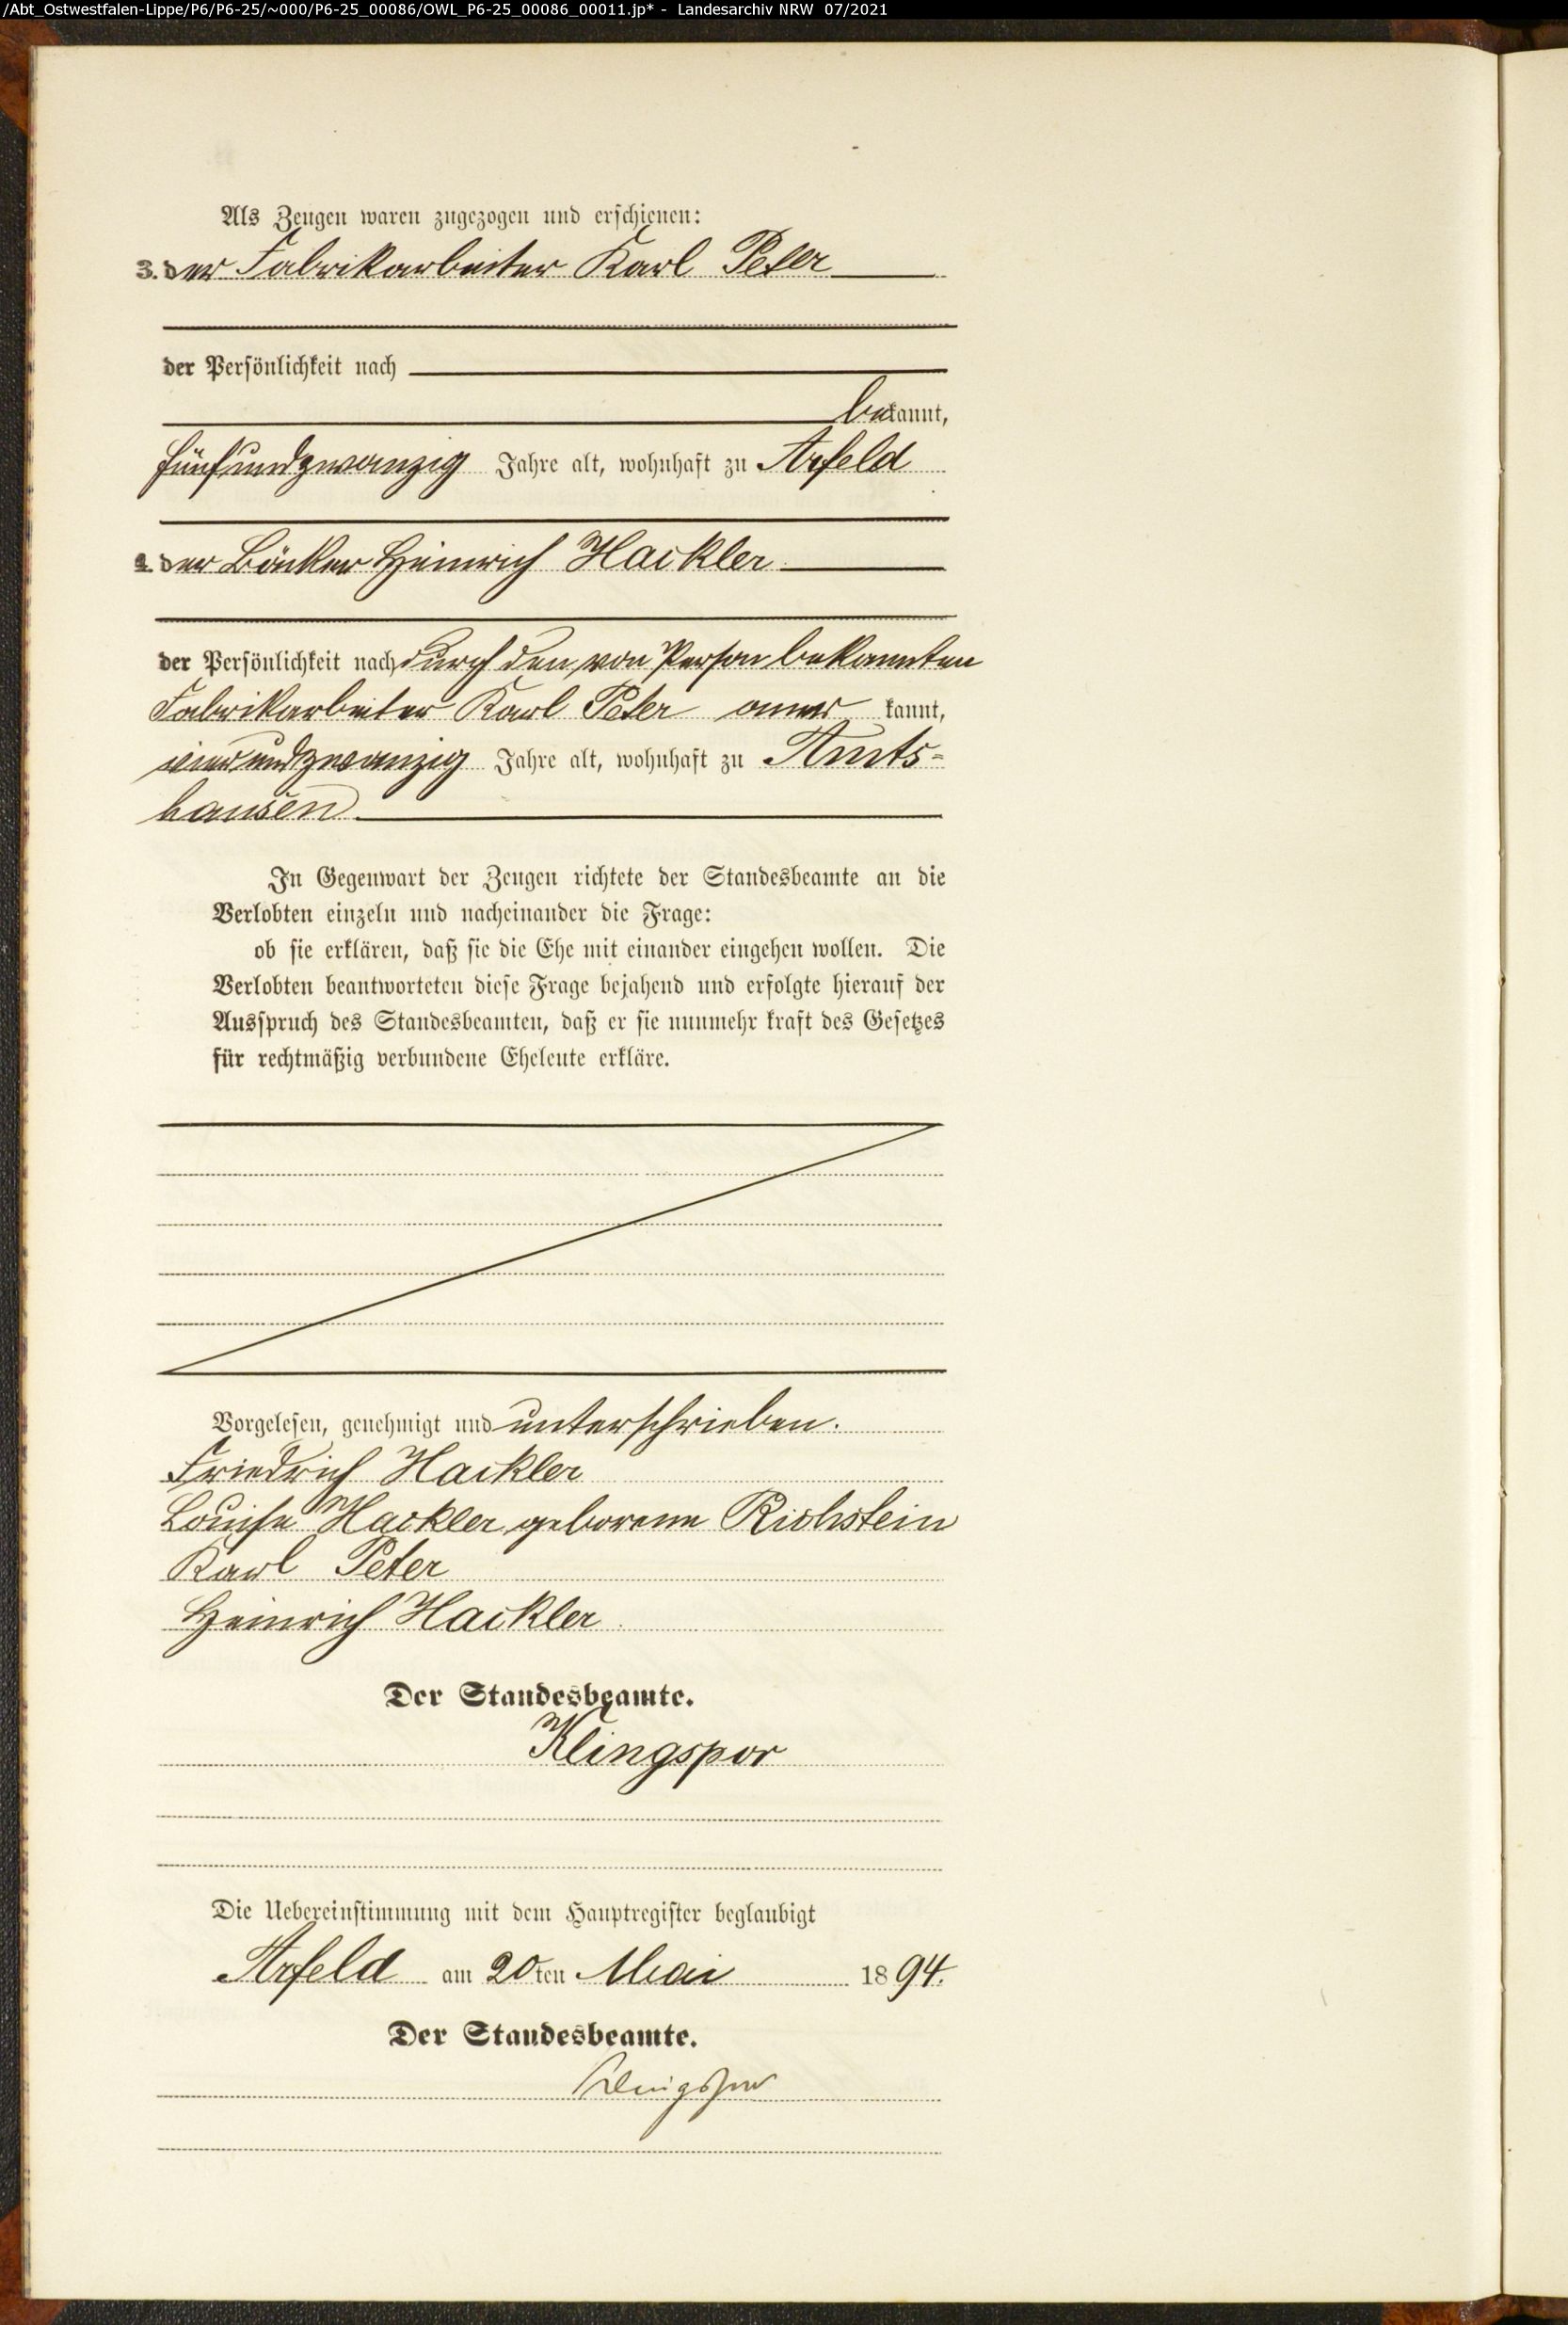 /Abt_Ostwestfalen-Lippe/P6/P6-25/~000/P6-25_00086/OWL_P6-25_00086_00011.jp* - Landesarchiv NRW 07/2021
Als Zeugen waren zugezogen und erschienen:
3. der Fabrikarbeiter Karl Peter
der Persönlichkeit nach
bekannt,
fünfundzwanzig Jahre alt, wohnhaft zu Arfeld
4. der Bäcker Heinrich Hackler
der Persönlichkeit nach durch den von Person bekannten
Fabrikarbeiter Karl Peter aner kannt,
vierundzwanzig Jahre alt, wohnhaft zu Amts-
hausen
In Gegenwart der Zeugen richtete der Standesbeamte an die
Verlobten einzeln und nacheinander die Frage:
ob sie erklären, daß sie die Ehe mit einander eingehen wollen. Die
Verlobten beantworteten diese Frage bejahend und erfolgte hierauf der
Ausspruch des Standesbeamten, daß er sie nunmehr kraft des Gesetzes
für rechtmäßig verbundene Eheleute erkläre.
Vorgelesen, genehmigt und unterschrieben.
Friedrich Hackler
Louise Hackler geborene Richstein
Karl Peter
Heinrich Hackler
Der Standesbeamte.
Klingspor
Die Uebereinstimmung mit dem Hauptregister beglaubigt
Arfeld am 20ten Mai 1894.
Der Standesbeamte.
Klingspor